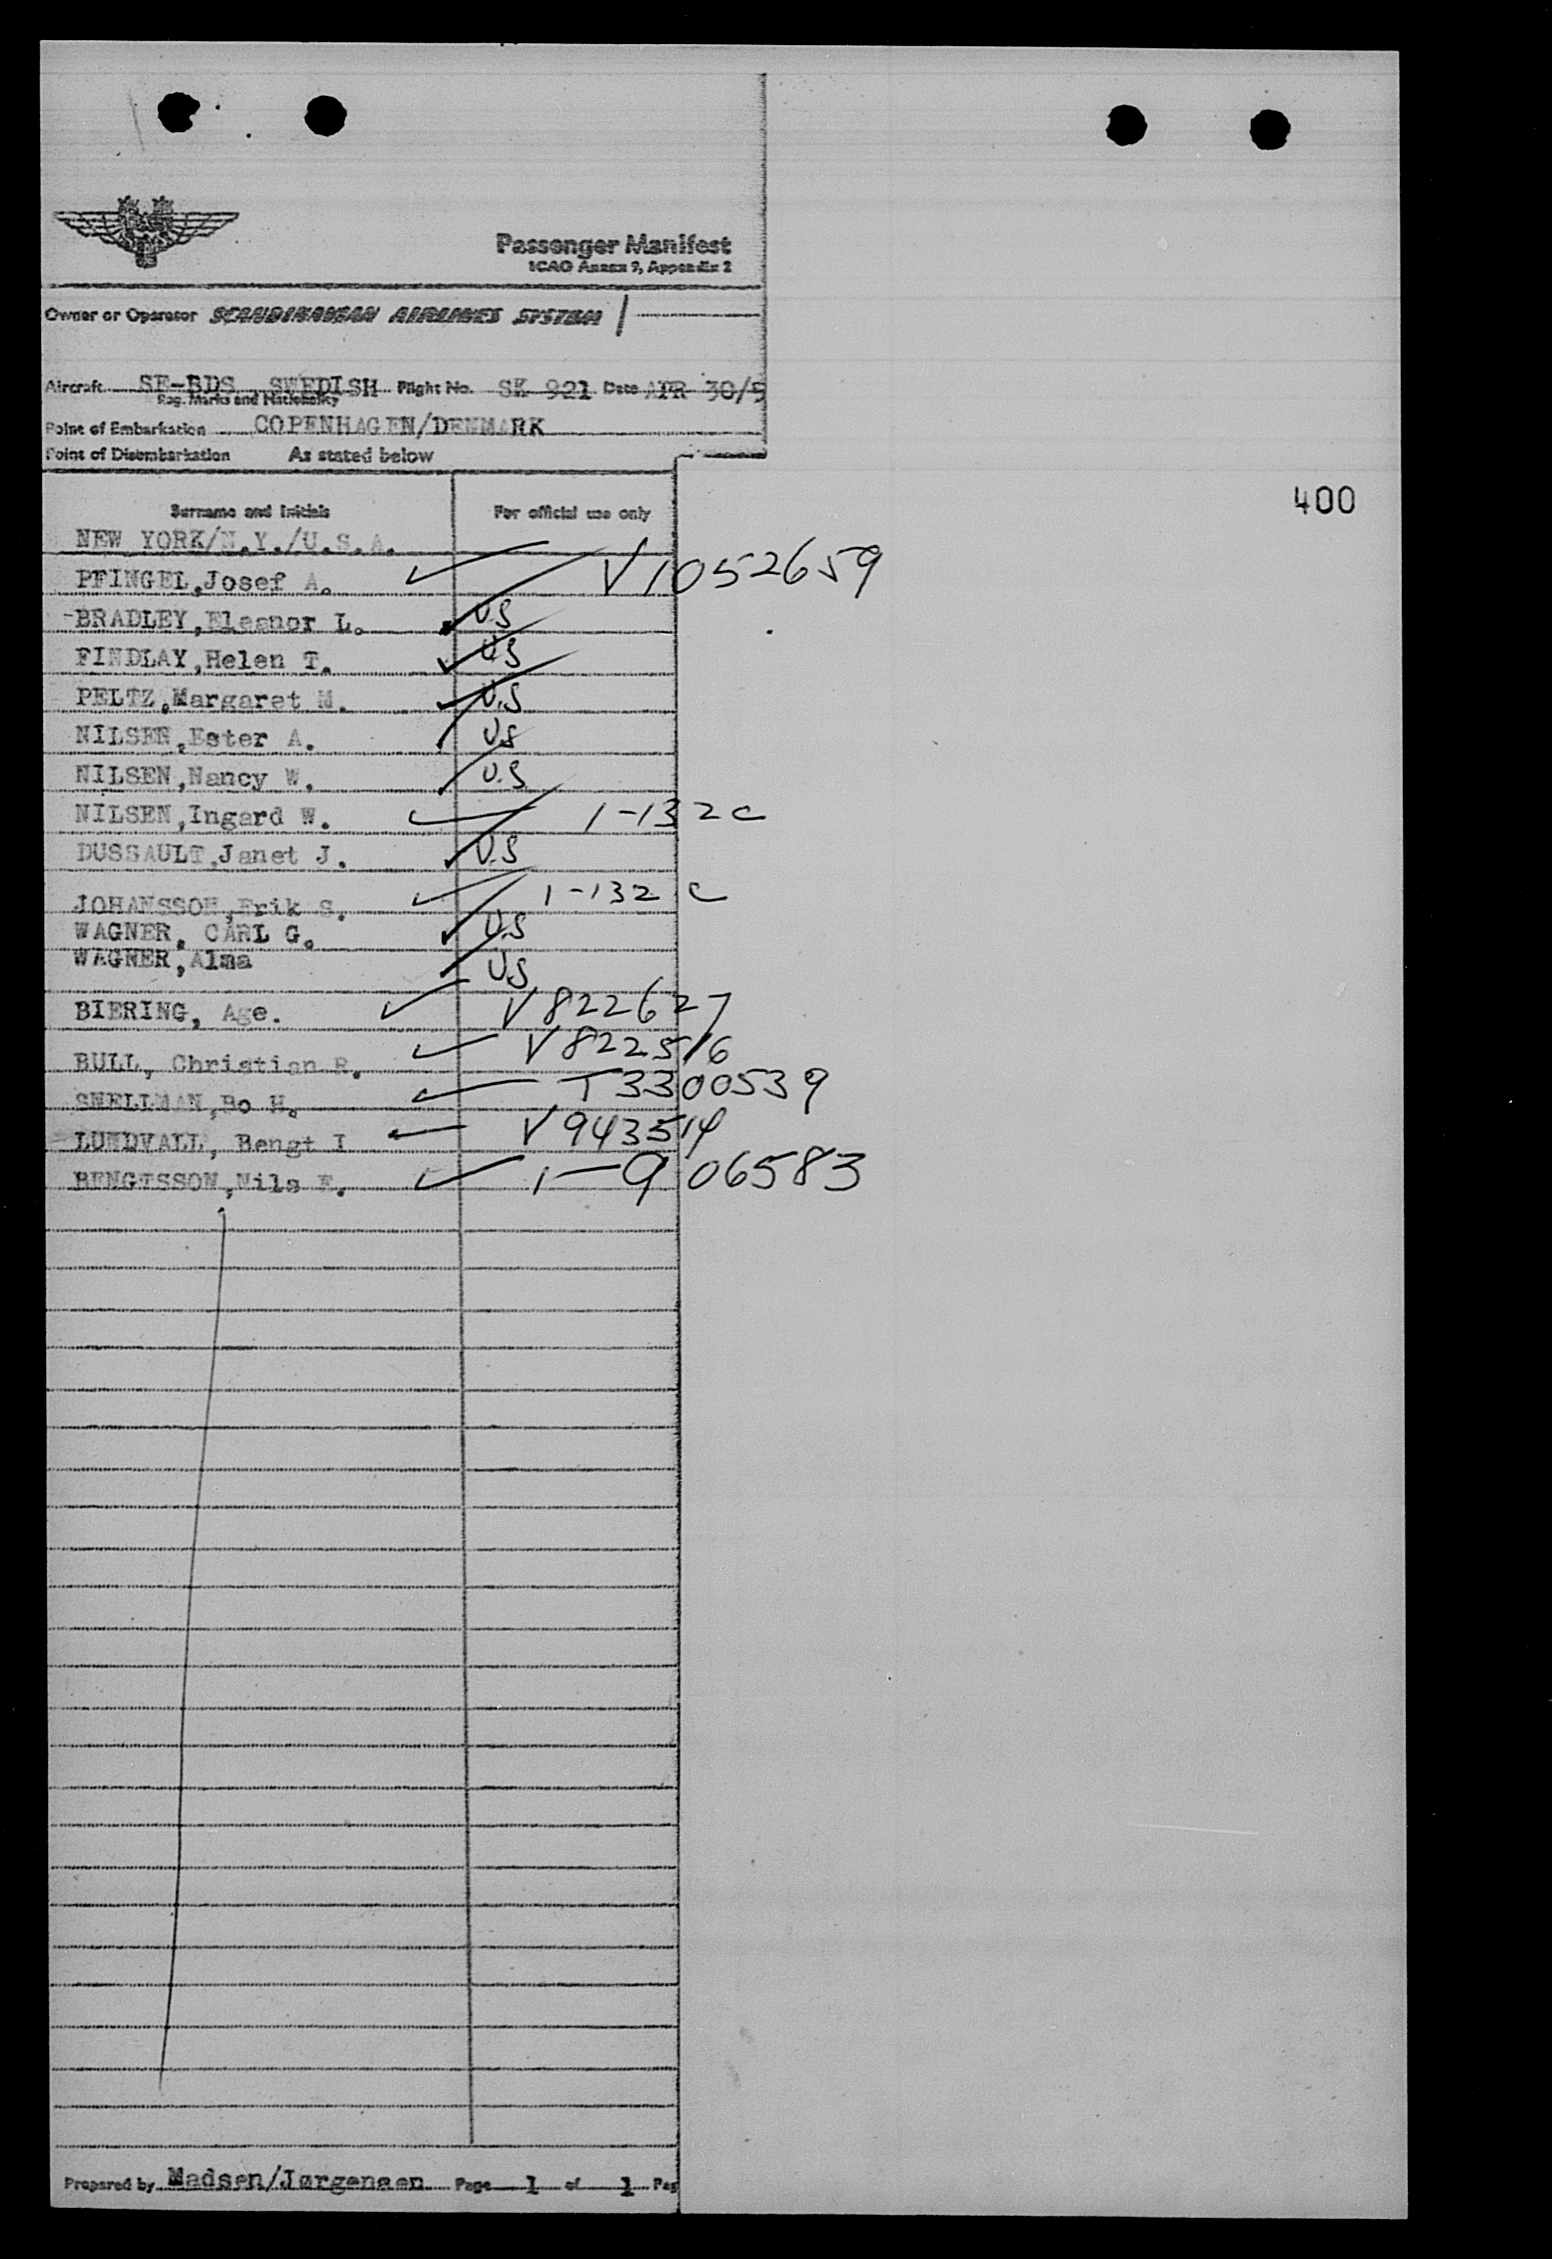 Passenger Manifest
ICAO Annex 9, Appendix 2
Owner or Operator SCANDINAVIAN AIRLINES SYSTEM
Aircraft SE-BDS SWEDISH Flight No. SK 921 Date APR 30/5
Reg. Marks and Nationality
Point of Embarkation COPENHAGEN/DENMARK
Point of Disembarkation As stated below
400
Surname and Initials For official use only
NEW YORK/N.Y./U.S.A.
PFINGEL,Josef A. V1052659
-BRADLEY,Eleanor L. U.S
FINDLAY,Helen T. U.S
PELTZ,Margaret M. U.S
NILSEN,Ester A. U.S
NILSEN,Nancy W. U.S
NILSEN,Ingard W. 1-132C
DUSSAULT,Janet J. U.S
JOHANSSON,Erik S. 1-132 C
WAGNER, CARL G. U.S
WAGNER,Alma U.S
BIERING, Age. V822627
BULL, Christian R. V822516
SNELLMAN,Bo H. T3300539
LUNDVALL, Bengt I V943514
BENGTSSON,Nils E. 1-906583
Prepared by Madsen/Jørgensen Page 1 of 1 Pag